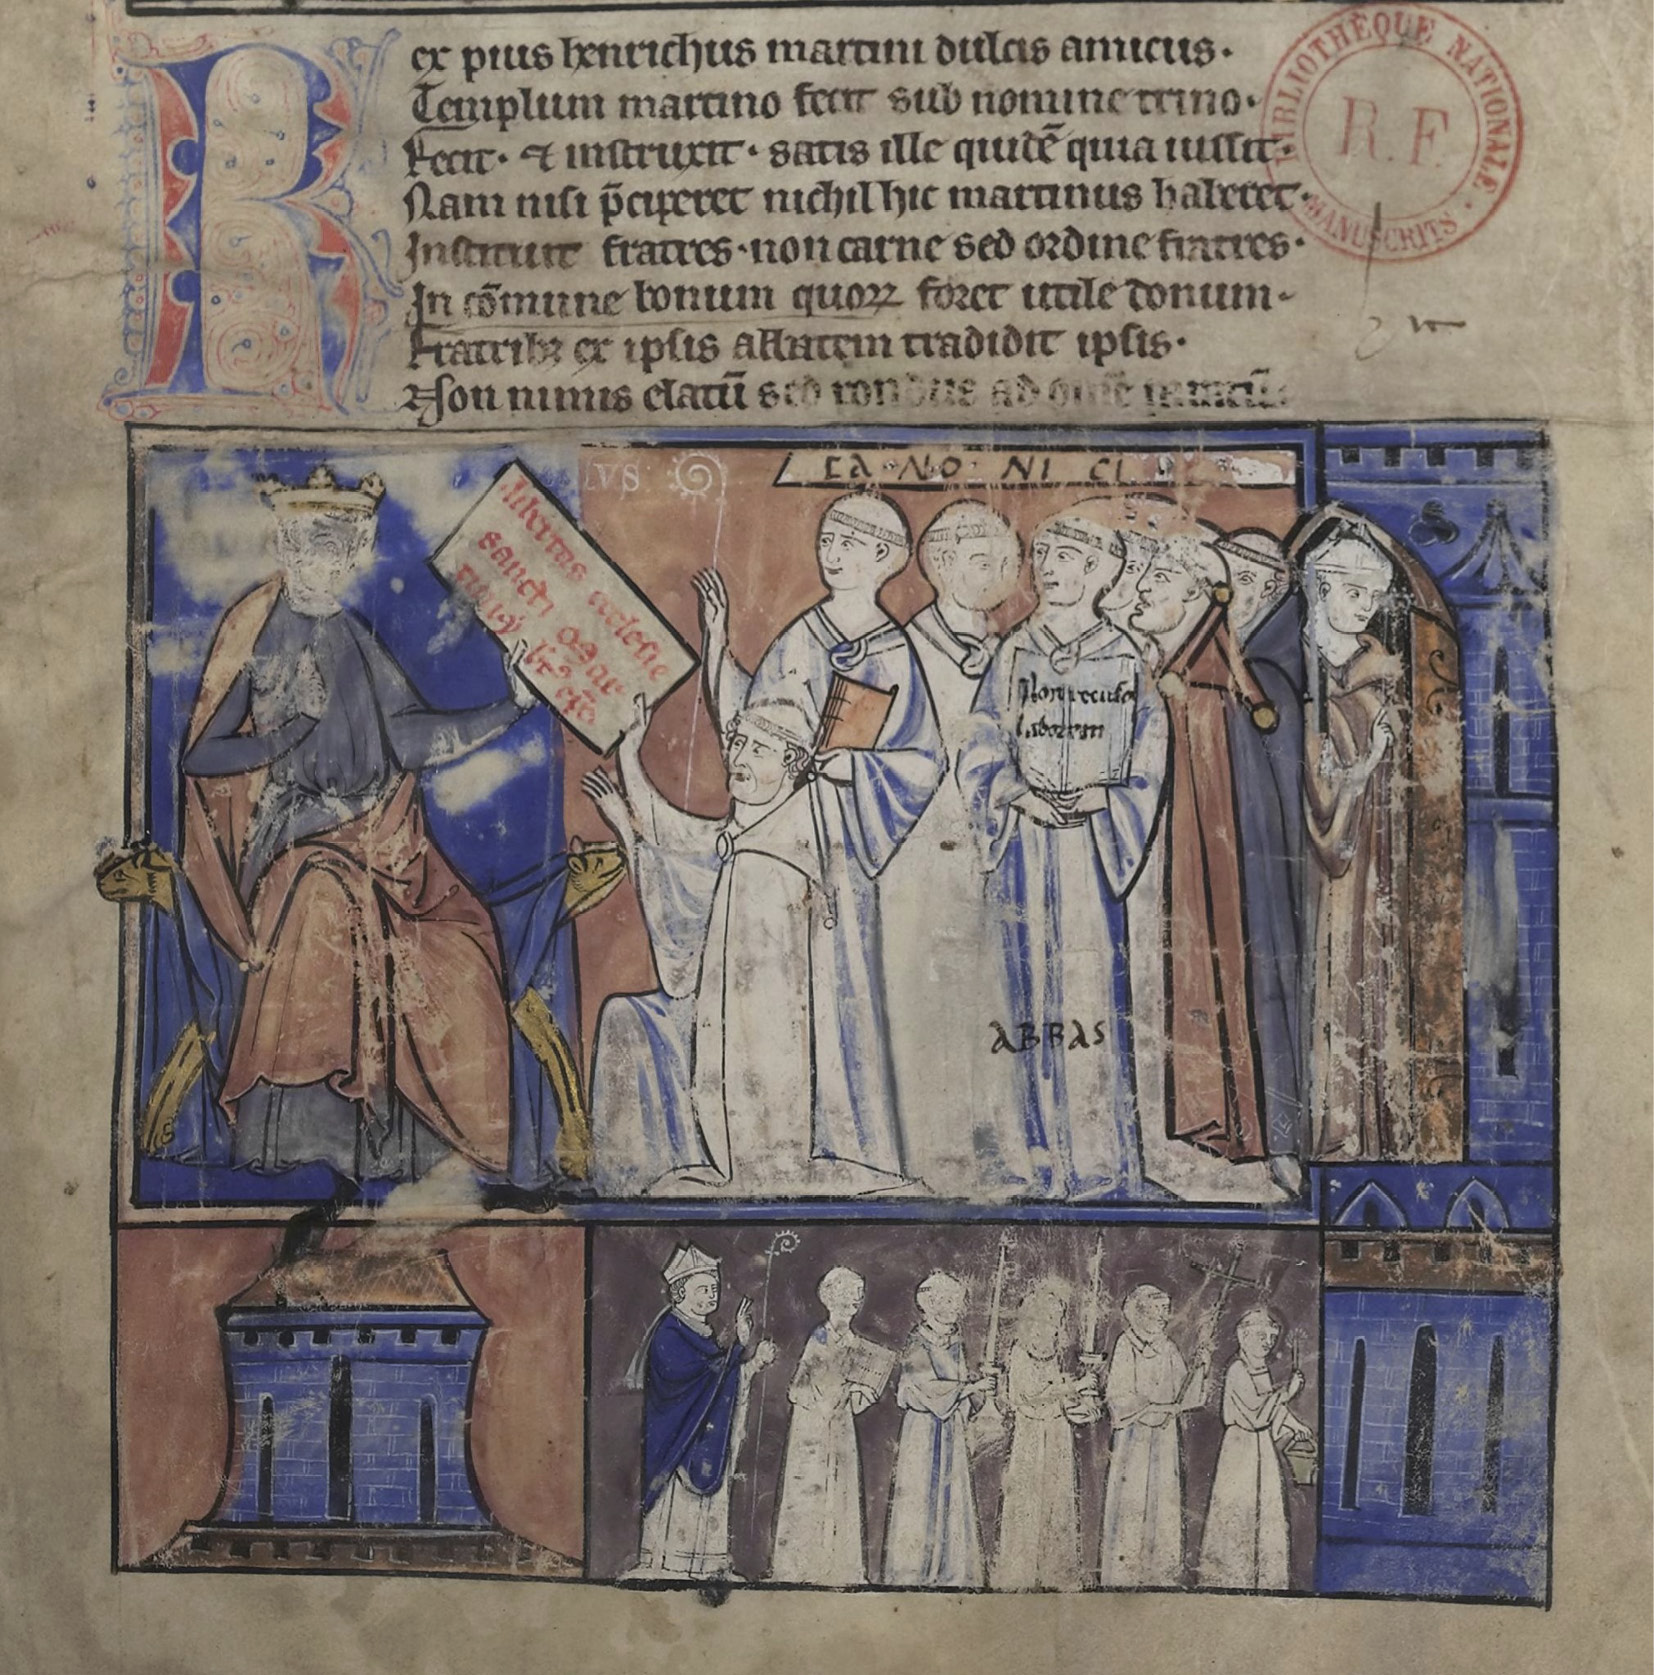 Rex pius henrichus martini dulcis amicus·
Templum martino fecit sub nomine trino·
Fecit· ⁊ instruxit· satis ille quidē quia iussit·
Nam nisi p̄ciperet nichil hic martinus haberet·
Instituit fratres· non carne sed ordine fratres·
In cōmune bonum quoꝝ foret utile donum·
Fratribꝫ ex ipsis abbatem tradidit ipsis·
Non nimis elatū sed
BIBLIOTHÈQUE NATIONALE
R.F.
MANUSCRITS
VS
CA·NO·NI·CI
libertas ecclesie
sancti
Non recuso
laborem
ABBAS